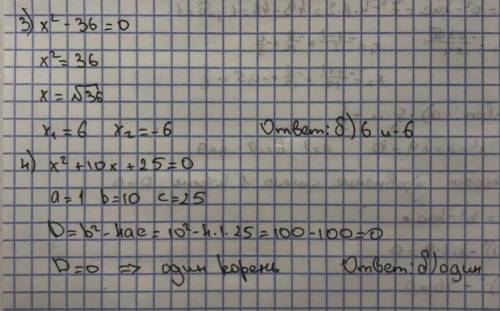 3) x² - 36 = 0
x² = 36
x = √36
x₁ = 6 x₂ = -6 Ответ: б) 6 и -6
4) x² + 10x + 25 = 0
a = 1 b = 10 c = 25
D = b² - 4ac = 10² - 4·1·25 = 100 - 100 = 0
D = 0 => один корень Ответ: б) один